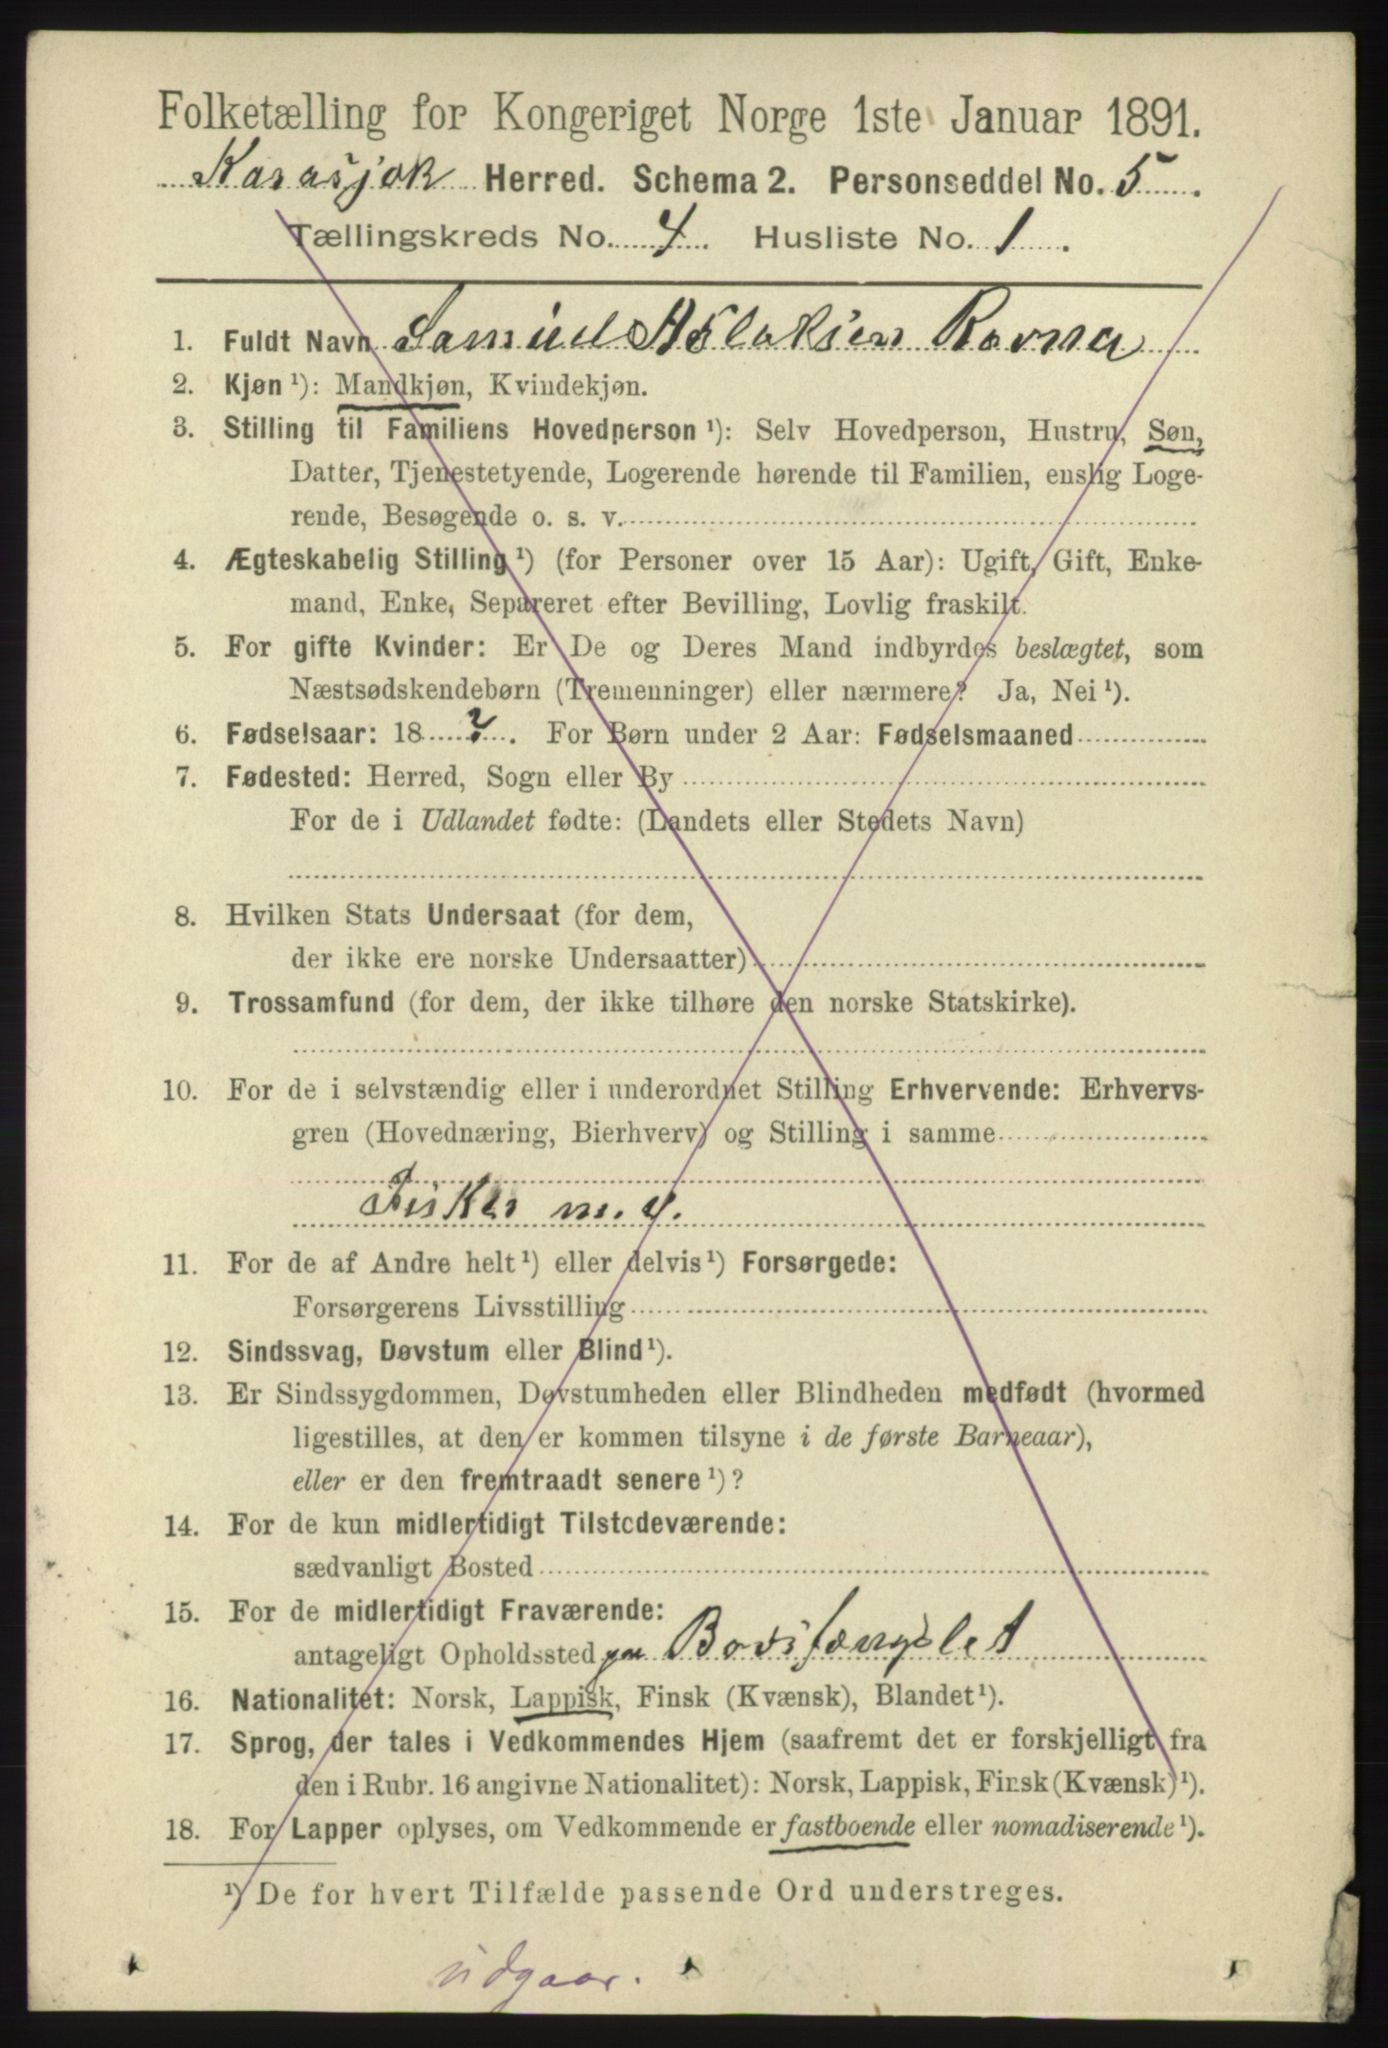 Folketælling for Kongeriget Norge 1ste Januar 1891.
Karasjok Herred. Schema 2. Personseddel No. 5.
Tællingskreds No. 4. Husliste No. 1.
1. Fuldt Navn Samuel Aslaksen Ravna
2. Kjøn ¹): Mandkjøn, Kvindekjøn.
3. Stilling til Familiens Hovedperson ¹): Selv Hovedperson, Hustru, Søn,
Datter, Tjenestetyende, Logerende hørende til Familien, enslig Loge-
rende, Besøgende o. s. v.
4. Ægteskabelig Stilling ¹) (for Personer over 15 Aar): Ugift, Gift, Enke-
mand, Enke, Separeret efter Bevilling, Lovlig fraskilt.
5. For gifte Kvinder: Er De og Deres Mand indbyrdes beslægtet, som
Næstsødskendebørn (Tremenninger) eller nærmere? Ja, Nei ¹).
6. Fødselsaar: 18 ?. For Børn under 2 Aar: Fødselsmaaned
7. Fødested: Herred, Sogn eller By
For de i Udlandet fødte: (Landets eller Stedets Navn)
8. Hvilken Stats Undersaat (for dem,
der ikke ere norske Undersaatter)
9. Trossamfund (for dem, der ikke tilhøre den norske Statskirke).
10. For de i selvstændig eller i underordnet Stilling Erhvervende: Erhvervs-
gren (Hovednæring, Bierhverv) og Stilling i samme
Fisker m. v.
11. For de af Andre helt ¹) eller delvis ¹) Forsørgede:
Forsørgerens Livsstilling
12. Sindssvag, Døvstum eller Blind ¹).
13. Er Sindssygdommen, Døvstumheden eller Blindheden medfødt (hvormed
ligestilles, at den er kommen tilsyne i de første Barneaar),
eller er den fremtraadt senere ¹)?
14. For de kun midlertidigt Tilstedeværende:
sædvanligt Bosted
15. For de midlertidigt Fraværende:
antageligt Opholdssted paa Bodsfængslet
16. Nationalitet: Norsk, Lappisk, Finsk (Kvænsk), Blandet ¹).
17. Sprog, der tales i Vedkommendes Hjem (saafremt det er forskjelligt fra
den i Rubr. 16 angivne Nationalitet): Norsk, Lappisk, Finsk (Kvænsk) ¹).
18. For Lapper oplyses, om Vedkommende er fastboende eller nomadiserende ¹).
¹) De for hvert Tilfælde passende Ord understreges.
udgaar.